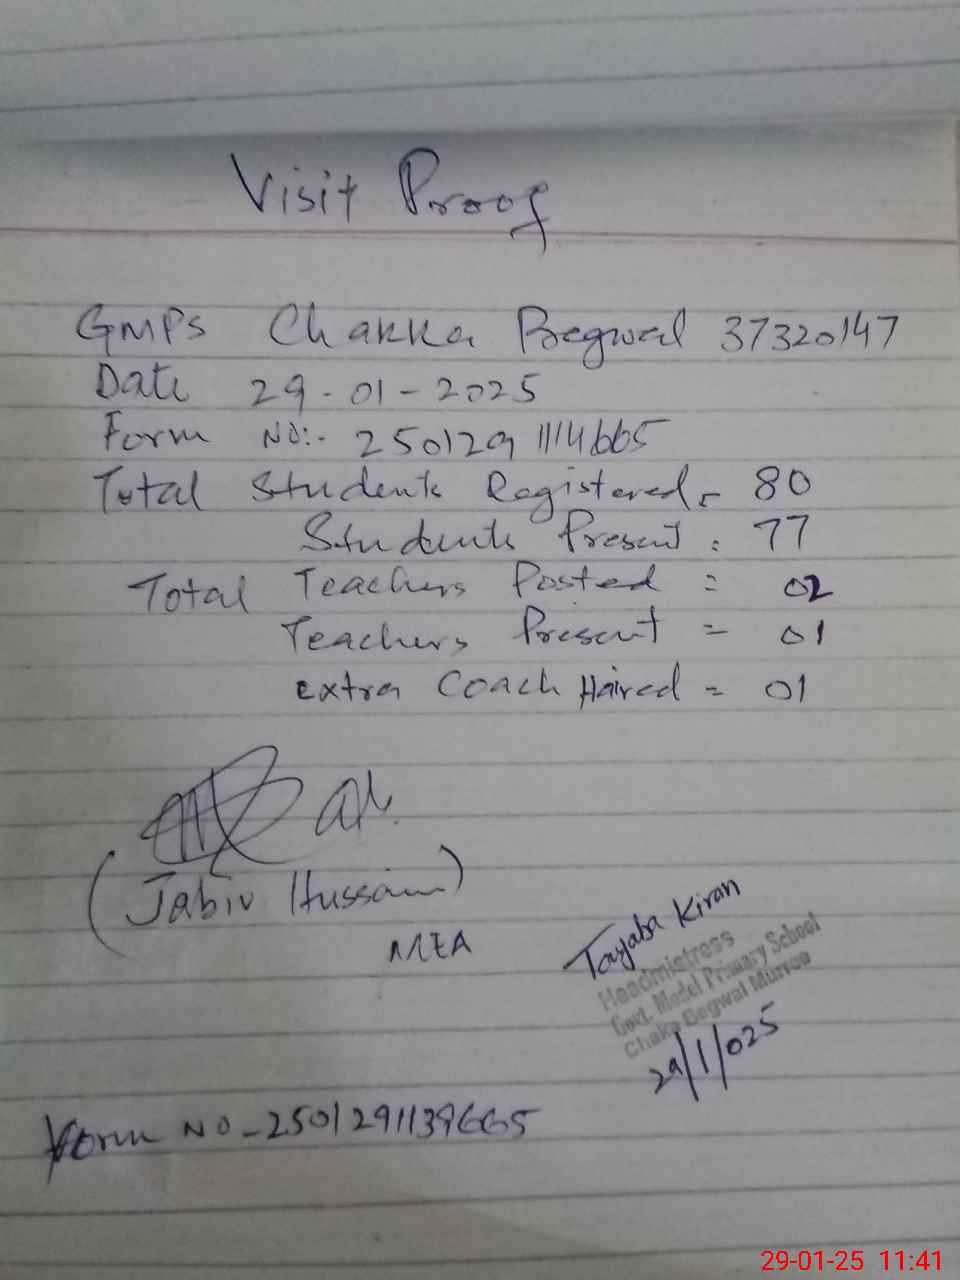 Visit Proof
GMPS Chakka Begwal 37320147
Date 29-01-2025
Form No:- 2501291114665
Total Students Registered = 80
Students Present : 77
Total Teachers Posted = 02
Teachers Present = 01
extra Coach Haired = 01
(Jabir Hussain)
MEA
Tayaba Kiran
Headmistress
Govt. Model Primary School
Chaka Begwal Murree
29/1/025
Form NO-2501291139665
29-01-25 11:41